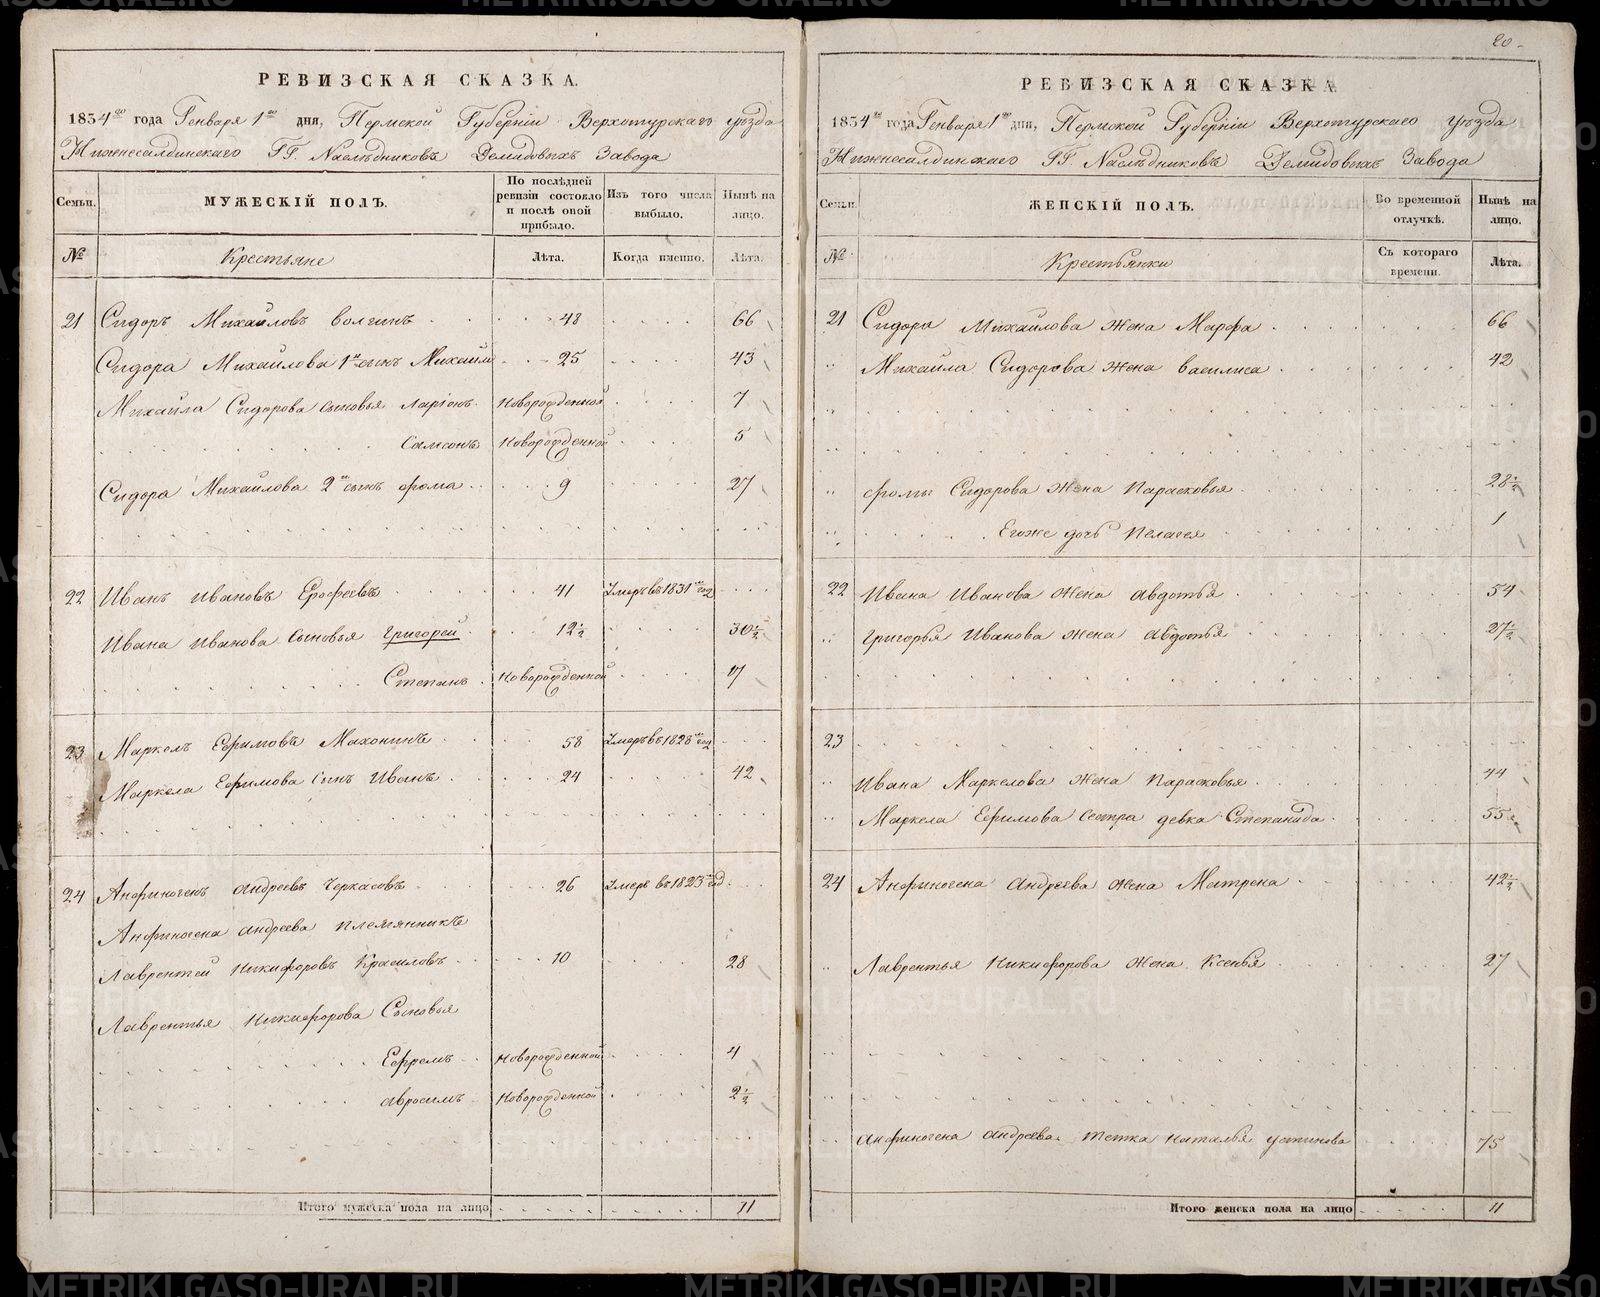 РЕВИЗСКАЯ СКАЗКА.
1834го года Генваря 1го дня, Пермской Губерніи Верхотурскаго уѣзда
Нижнесалдинскаго ГГ. Наслѣдниковъ Демидовыхъ Завода
Семьи. МУЖЕСКІЙ ПОЛЪ. По послѣдней ревизіи состояло и послѣ оной прибыло. Изъ того числа выбыло. Нынѣ на лицо.
№ Крестьяне Лѣта. Когда именно. Лѣта.
21 Сидоръ Михайловъ Волгинъ 48 66
Сидора Михайлова 1й сынъ Михаила 25 43
Михайла Сидорова сыновья Ларіонъ Новорожденной 7
Самсонъ Новорожденной 5
Сидора Михайлова 2й сынъ Фома 9 27
22 Иванъ Ивановъ Ерофеевъ 41 Умеръ въ 1831м год
Ивана Иванова сыновья Григорей 12½ 30½
Степанъ Новорожденной 17
23 Маркелъ Ефимовъ Махонинъ 58 Умеръ въ 1828м год
Маркела Ефимова сынъ Иванъ 24 42
24 Анфиногенъ Андреевъ Черкасовъ 26 Умеръ въ 1823м год
Анфиногена Андреева племянникъ
Лаврентей Никифоровъ Красиловъ 10 28
Лаврентья Никифорова Сыновья
Ефремъ Новорожденной 4
Авросимъ Новорожденной 2½
Итого мужеска пола на лицо 11
20
РЕВИЗСКАЯ СКАЗКА
1834го года Генваря 1го дня, Пермской Губерніи Верхотурскаго уѣзда
Нижнесалдинскаго ГГ Наслѣдниковъ Демидовыхъ Завода
Семьи. ЖЕНСКІЙ ПОЛЪ. Во временной отлучкѣ. Нынѣ на лицо.
№ Крестьянки Съ котораго времени. Лѣта.
21 Сидора Михайлова жена Марфа 66
Михайла Сидорова жена Василиса 42
Фомы Сидорова жена Парасковья 28½
Егоже дочь Пелагея 1
22 Ивана Иванова жена Авдотья 54
Григорья Иванова жена Авдотья 27½
23
Ивана Маркелова жена Парасковья 44
Маркела Ефимова сестра девка Степанида 55
24 Анфиногена Андреева жена Матрена 42½
Лаврентья Никифорова жена Ксенья 27
Анфиногена Андреева тетка Наталья Устинова 75
Итого женска пола на лицо 11
METRIKI.GASO-URAL.RU